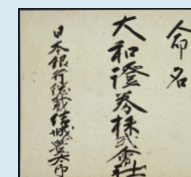 命名
大和證券株式會社
日本銀行總裁結城豊太郎